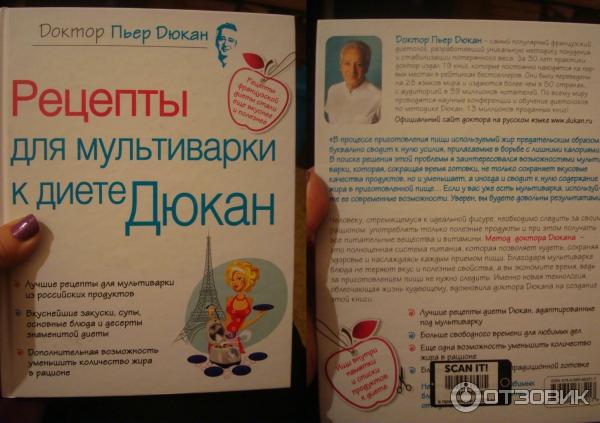 Доктор Пьер Дюкан
Рецепты
французской
диеты стали
еще вкуснее
и полезнее
Рецепты
для мультиварки
к диете
Дюкан
Лучшие рецепты для мультиварки
из российских продуктов
Вкуснейшие закуски, супы,
основные блюда и десерты
знаменитой диеты
Дополнительная возможность
уменьшить количество жира
в рационе
Доктор Пьер Дюкан – самый популярный французский
диетолог, разработавший уникальную методику похудения
и стабилизации потерянного веса. За 30 лет практики
доктор издал 19 книг, которые постоянно находятся на первых
местах в рейтинге бестселлеров. Они были переведены
на 25 языков мира и издаются более чем в 50 странах,
с аудиторией в 39 миллионов читателей. По всему миру
проводятся научные конференции и обучение диетологов
по методике Дюкан. 13 миллионов проданных книг!
Официальный сайт доктора на русском языке www.dukan.ru
«В процессе приготовления пищи используемый жир предательским образом
буквально сводит к нулю усилия, прилагаемые в борьбе с лишними калориями.
В поиске решения этой проблемы я заинтересовался возможностями мульти-
варки, которая, сокращая время готовки, не только сохраняет вкусовые
качества продуктов, но и уменьшает, а иногда и сводит к нулю содержание
жира в приготовленной пище... Если у вас уже есть мультиварка, используй-
те ее современные возможности. Уверен, вы будете довольны результатами.
Человеку, стремящемуся к идеальной фигуре, необходимо следить за своим
рационом: употреблять только полезные продукты и при этом получать
все питательные вещества и витамины. Метод доктора Дюкана –
это полноценная система питания, которая позволяет худеть, сохраняя
здоровье и наслаждаясь каждым приемом пищи. Благодаря мультиварке
блюда не теряют вкус и полезные свойства, а вы экономите время, ведь
за приготовлением пищи не нужно следить. Именно новая технология,
облегчающая жизнь худеющему, вдохновила доктора Дюкана на создание
этой книги.
Лучшие рецепты диеты Дюкан, адаптированные
под мультиварку
Больше свободного времени для любимых дел
Еще одна возможность уменьшить количество
жира в рационе
традиционной готовке
любимых
Ищи внутри
памятки
и списки
продуктов
к диете
SCAN IT!
ОТЗОВИК